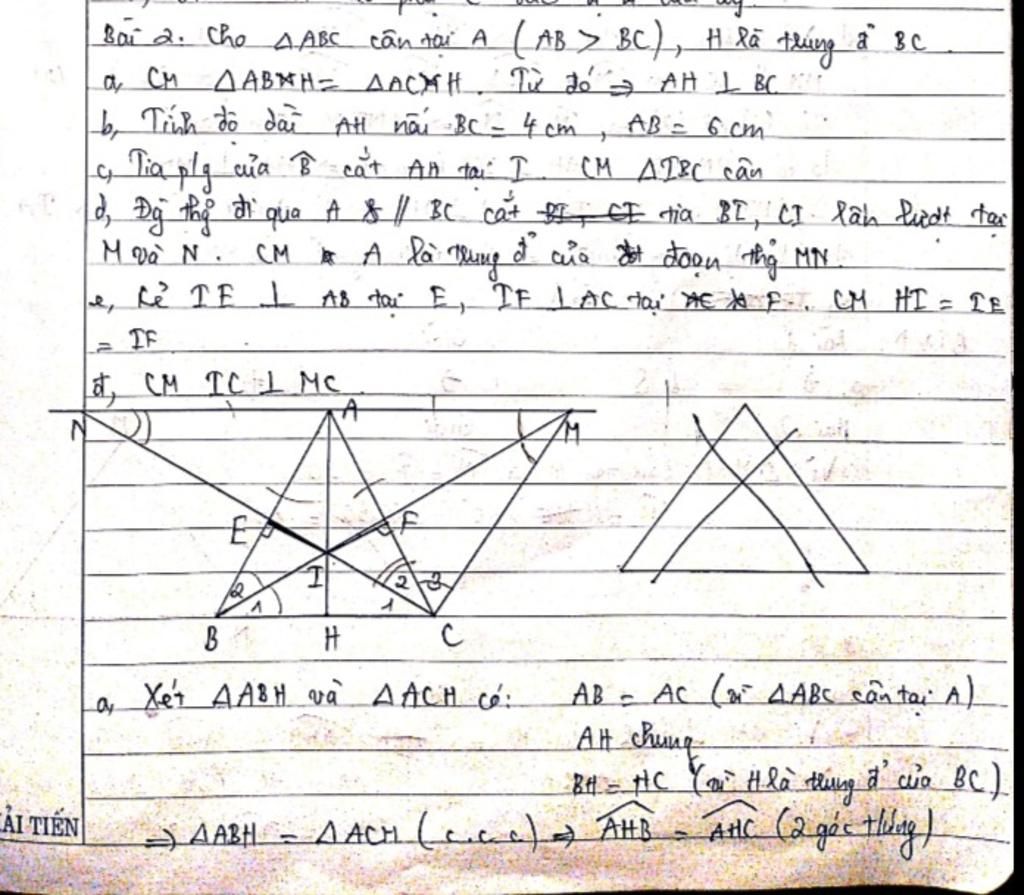 Bài 2. Cho △ABC cân tại A (AB > BC), H là trung đ² BC.
a, CM △ABH = △ACH. Từ đó ⇒ AH ⊥ BC
b, Tính độ dài AH nếu BC = 4 cm, AB = 6 cm
c, Tia p/g của B̂ cắt AH tại I. CM △IBC cân
d, Đg thg đi qua A & // BC cắt BI, CI tia BI, CI lần lượt tại
M và N. CM A là trung đ² của đoạn thg MN.
e, Kẻ IE ⊥ AB tại E, IF ⊥ AC tại F. CM HI = IE
= IF
đ, CM IC ⊥ MC.
N A M
E F
I
2 1 1 2 3
B H C
a, Xét △ABH và △ACH có: AB = AC (vì △ABC cân tại A)
AH chung
BH = HC (vì H là trung đ² của BC)
ẢI TIẾN
⇒ △ABH = △ACH (c.c.c) ⇒ AHB = AHC (2 góc tưng)